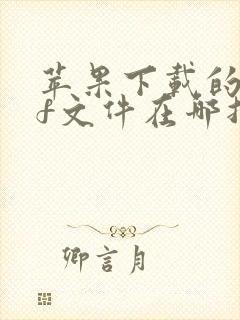 苹果下载的
f文件在哪找
卿言月